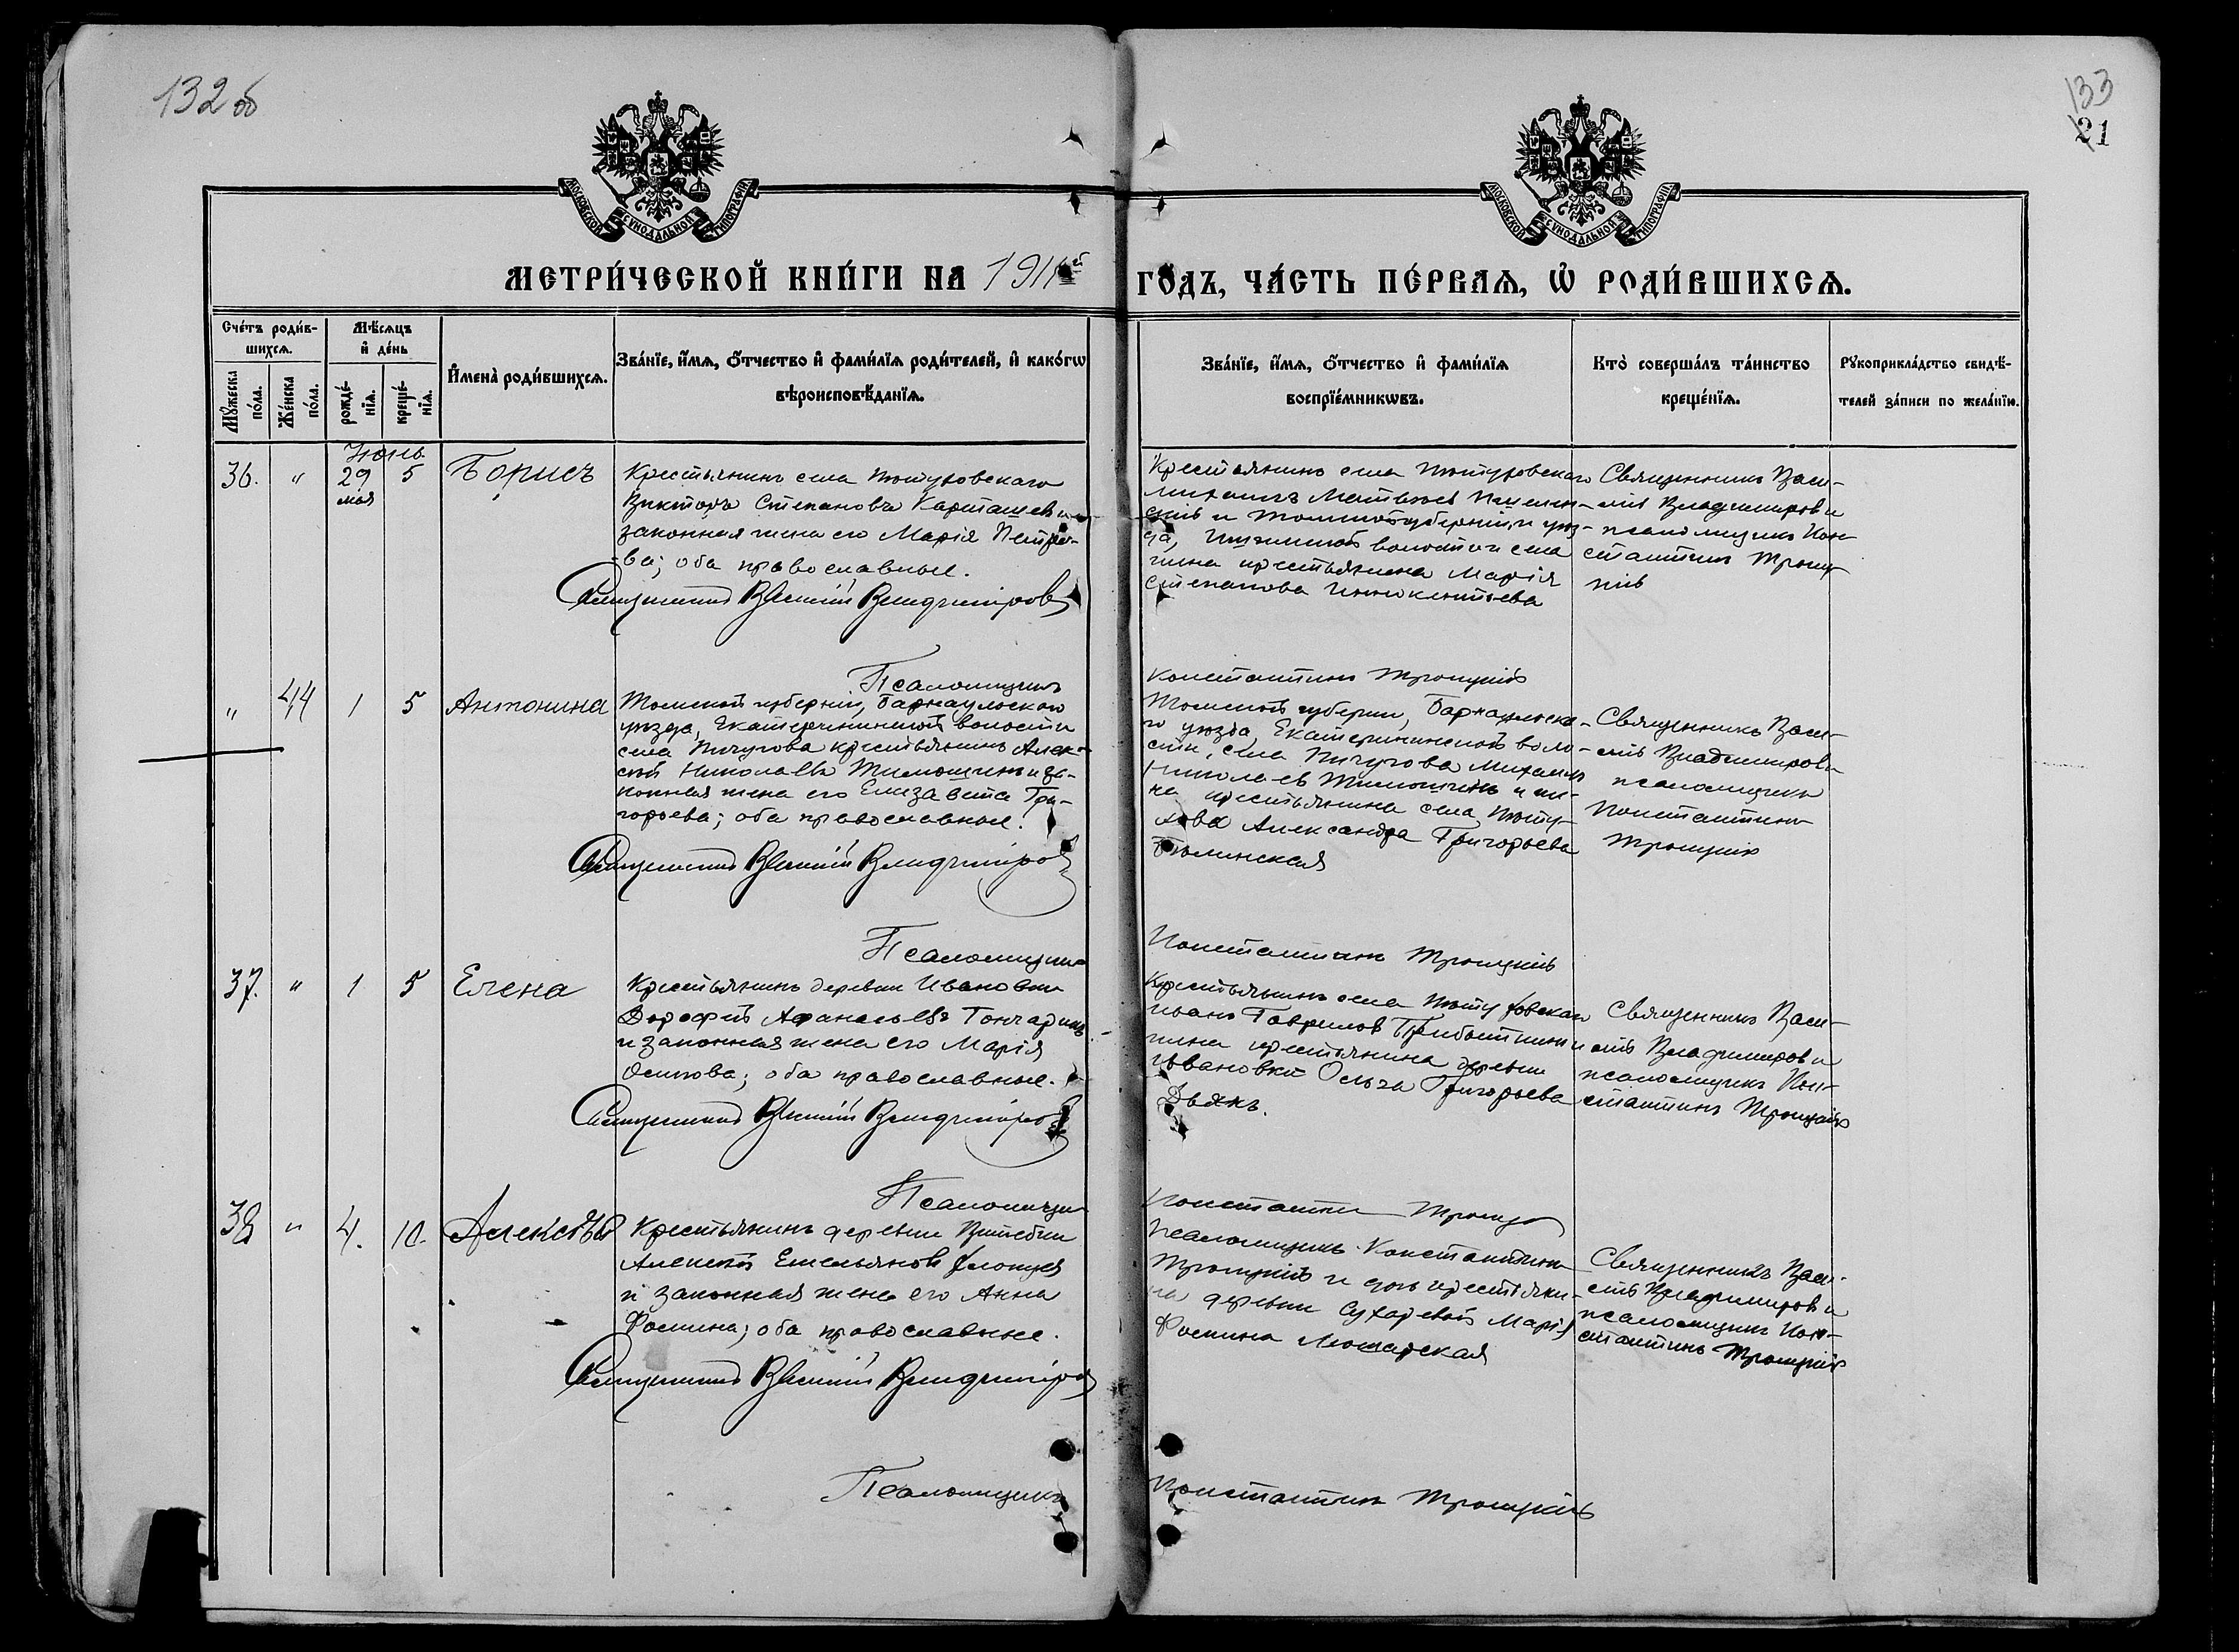 132 об
133
21
МОСКОВСКОЙ СѴНОДАЛЬНОЙ ТИПОГРАФІИ
МОСКОВСКОЙ СѴНОДАЛЬНОЙ ТИПОГРАФІИ
МЕТРИ́ЧЕСКОЙ КНИ́ГИ НА 1911й
ГО́ДЪ, ЧА́СТЬ ПЕ́РВАЯ, Ѿ РОДИ́ВШИХСѦ.
Сче́тъ роди́в-
шихсѧ.
Мꙋ́жеска по́ла.
Же́нска по́ла.
Мѣ́сѧцъ
и҆ де́нь
рожде́-
нїѧ.
креще́-
нїѧ.
И҆мена̀ роди́вшихсѧ.
Зва́нїе, и҆́мѧ, ѻ҆́тчество и҆ фами́лїѧ роди́телей, и҆ како́гѡ
вѣроисповѣ́данїѧ.
Зва́нїе, и҆́мѧ, ѻ҆́тчество и҆ фами́лїѧ
воспрїе́мникѡвъ.
Кто̀ соверша́лъ та́инство
креще́нїѧ.
Рꙋкоприкла́дство свидѣ́-
телей за́писи по жела́нїю.
Іюнь
36. " 29 5 Борисъ
мая
Крестьянинъ села
Викторъ Степановъ Карташевъ и
законная жена его Марія Петро-
ва; оба православные.
Священникъ Василій Владиміровъ
Крестьянинъ села
Михаилъ Матвѣев
и Томской губерніи, уѣз-
да, волости села
крестьянина Марія
Степанова Иннокентьева
Священникъ Васи-
лій Владиміров и
псаломщикъ Кон-
стантинъ Троиц-
кій
Псаломщикъ
Константинъ Троицкій
" 44 1 5 Антонина
Томской губерніи, Барнаульскаго
уѣзда, Екатерининской волости
села Пичугова крестьянинъ Алек-
сѣй Николаевъ Тимошинъ и за-
конная жена его Елизавета Гри-
горьева; оба православные.
Священникъ Василій Владиміровъ
Томской губерніи, Барнаульска-
го уѣзда, Екатерининской воло-
сти, села Пичугова Михаилъ
Николаев Тимошинъ и
крестьянина села
Александра Григорьева
Священникъ Васи-
лій Владиміров и
псаломщикъ
Константинъ
Троицкій
Псаломщикъ
Константинъ Троицкій
37. " 1 5 Елена
Крестьянинъ деревни Ивановки
Дорофей Афанасьевъ Гончаринъ
и законная жена его Марія
Осипова; оба православные.
Священникъ Василій Владиміровъ
Крестьянинъ села
Иванъ Гаврилов и
крестьянина деревни
Ивановки Ольга Григорьева
Дьякъ.
Священникъ Васи-
лій Владиміров и
псаломщикъ Кон-
стантинъ Троицкій
Псаломщикъ
Константинъ Троицкій
38 " 4. 10. Алексѣй
Крестьянинъ деревни Витебки
Алексѣй Емельянов
и законная жена его Анна
Фомина; оба православные.
Священникъ Василій Владиміровъ
Псаломщикъ Константинъ
Троицкій и дочь крестьяни-
на деревни Сухаревой Марія
Фомина
Священникъ Васи-
лій Владиміров и
псаломщикъ Кон-
стантинъ Троицкій
Псаломщикъ
Константинъ Троицкій